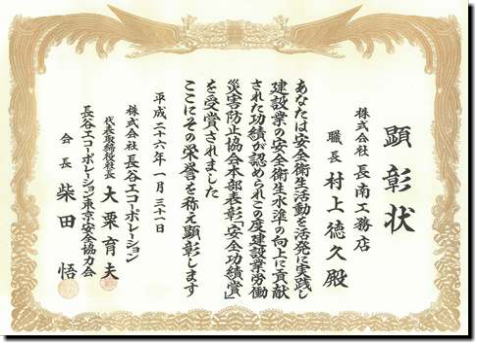 顕彰状
株式会社 長南工務店
職長 村上徳久殿
あなたは安全衛生活動を活発に実践し
建設業の安全衛生水準の向上に貢献
された功績が認められこの度建設業労働
災害防止協会本部表彰「安全功績賞」
を受賞されました
ここにその栄誉を称え顕彰します
平成二十六年一月三十一日
株式会社長谷工コーポレーション
代表取締役社長 大栗育夫
長谷工コーポレーション東京安全協力会
会長 柴田 悟